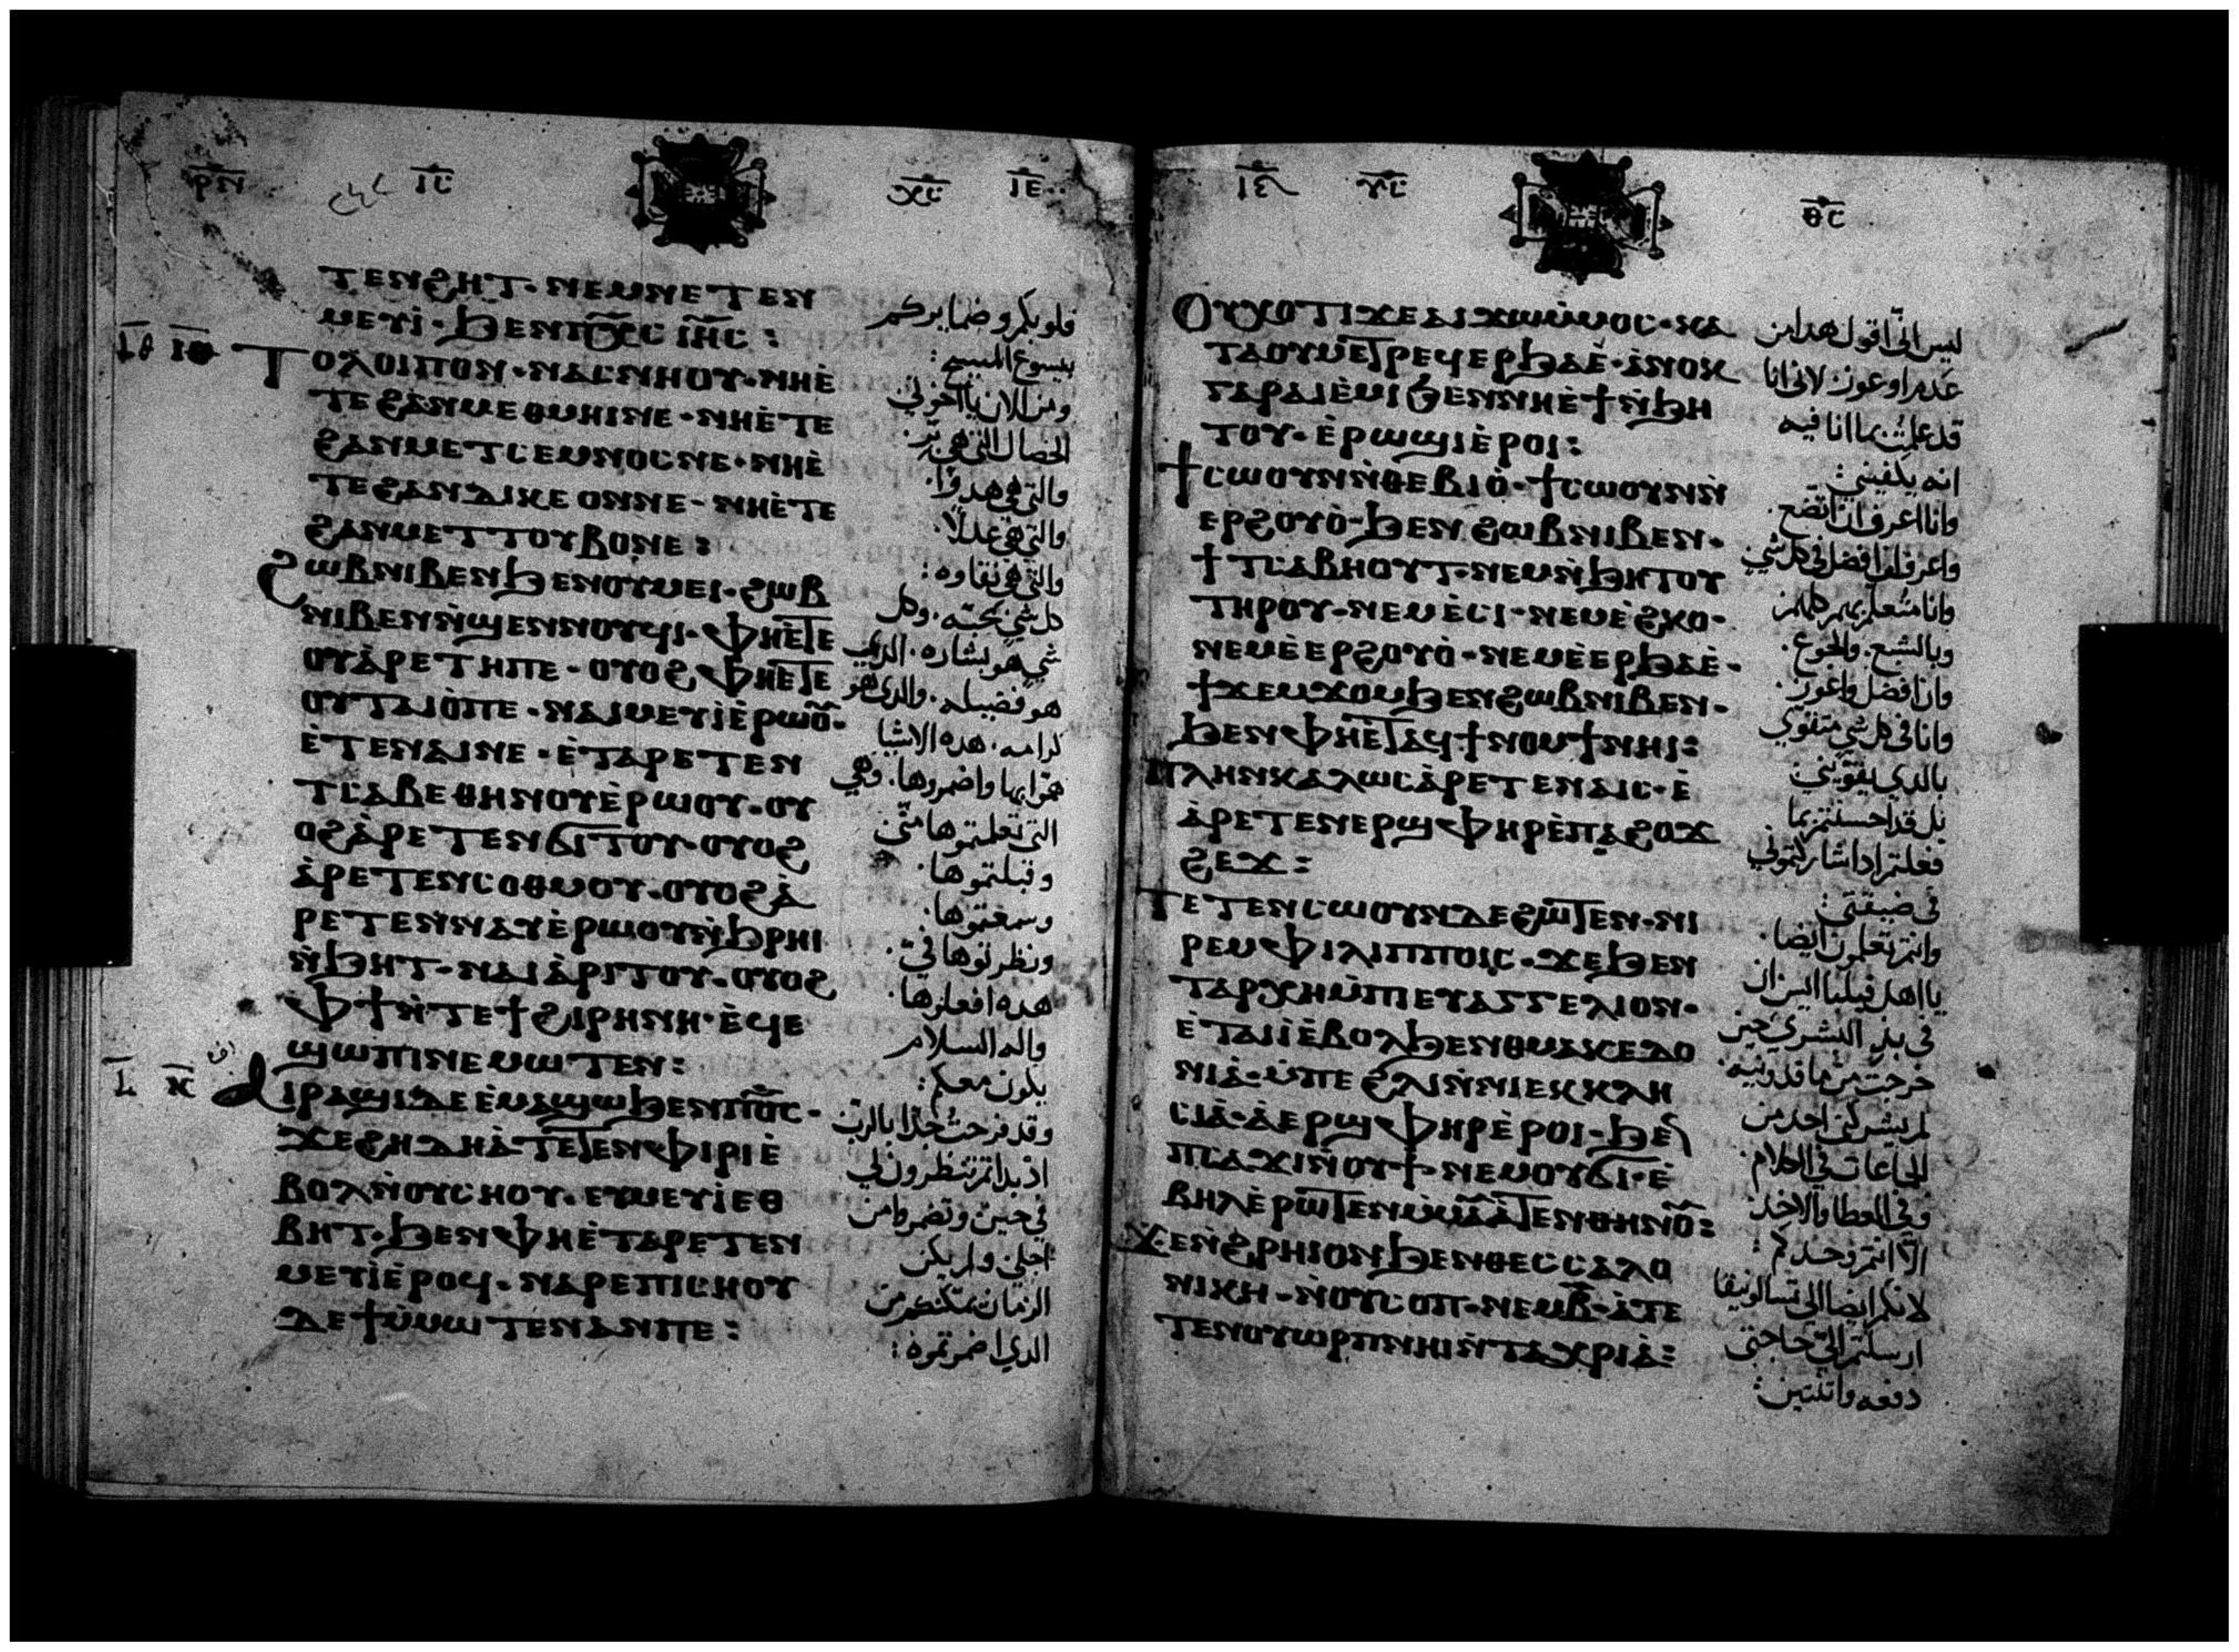 ⲧⲉⲛϩⲏⲧ· ⲛⲉⲙⲛⲉⲧⲉⲛ
ⲙⲉⲩⲓ̀· ϧⲉⲛⲡⲭ̅ⲥ ⲓⲏ̅ⲥ:
ⲧⲟⲗⲟⲓⲡⲟⲛ· ⲛⲁⲥⲛⲏⲟⲩ· ⲛⲏⲉ̀
ⲧⲉϩⲁⲛⲙⲉⲑⲙⲏⲓⲛⲉ· ⲛⲏⲉ̀ⲧⲉ
ϩⲁⲛⲙⲉⲧⲥⲉⲙⲛⲟⲥⲛⲉ· ⲛⲏⲉ̀
ⲧⲉϩⲁⲛⲇⲓⲕⲉⲟⲛⲛⲉ· ⲛⲏⲉ̀ⲧⲉ
ϩⲁⲛⲙⲉⲧⲧⲟⲩⲃⲟⲛⲉ:
ϩⲱⲃⲛⲓⲃⲉⲛϧⲉⲛⲟⲩⲙⲉⲓ· ϩⲱⲃ
ⲛⲓⲃⲉⲛⲛ̀ϣⲉⲛⲛⲟⲩϥⲓ· ⲫⲏⲉ̀ⲧⲉ
ⲟⲩⲁ̀ⲣⲉⲧⲏⲡⲉ· ⲟⲩⲟϩ ⲫⲏⲉ̀ⲧⲉ
ⲟⲩⲧⲁⲓⲟ̀ⲡⲉ· ⲛⲁⲓⲙⲉⲩⲓ̀ⲉ̀ⲣⲱⲟ̅ⲩ·
ⲉ̀ⲧⲉⲛⲁⲓⲛⲉ· ⲉ̀ⲧⲁⲣⲉⲧⲉⲛ
ⲧⲥⲁⲃⲉⲑⲏⲛⲟⲩⲉ̀ⲣⲱⲟⲩ· ⲟⲩ
ⲟϩⲁ̀ⲣⲉⲧⲉⲛϭⲓⲧⲟⲩ· ⲟⲩⲟϩ
ⲁ̀ⲣⲉⲧⲉⲛⲥⲟⲑⲙⲟⲩ· ⲟⲩⲟϩⲁ̀
ⲣⲉⲧⲉⲛⲛⲁⲩⲉ̀ⲣⲱⲟⲩⲛ̀ϧⲣⲏⲓ
ⲛ̀ϧⲏⲧ· ⲛⲁⲓⲁ̀ⲣⲓⲧⲟⲩ· ⲟⲩⲟϩ
ⲫϯⲛ̀ⲧⲉϯϩⲓⲣⲏⲛⲏ· ⲉ̀ϥⲉ
ϣⲱⲡⲓⲛⲉⲙⲱⲧⲉⲛ:
ⲁⲓⲣⲁϣⲓⲇⲉⲉ̀ⲙⲁϣⲱϧⲉⲛⲡⲟ̅ⲥ·
ϫⲉϩⲏⲇⲏⲁ̀ⲧⲉⲧⲉⲛⲫⲓⲣⲓⲉ̀
ⲃⲟⲗⲛ̀ⲟⲩⲥⲏⲟⲩ· ⲉⲩⲙⲉⲩⲓ̀ⲉⲑ
ⲃⲏⲧ· ϧⲉⲛⲫⲏⲉ̀ⲧⲁⲣⲉⲧⲉⲛ
ⲙⲉⲩⲓ̀ⲉ̀ⲣⲟϥ· ⲛⲁⲣⲉⲡⲓⲥⲏⲟⲩ
ⲇⲉϯⲙ̀ⲙⲱⲧⲉⲛⲁⲛⲡⲉ:
فلوبكم وضمايركم
بيسوع المسيح:
ومن الان يا اخوتي
الخصال التي هي بر·
والتي هي هدوًا·
والتي هي عدلًا·
والتي هي نقاوه:
كل شي بمحبة· وكل
شي هو بشاره· الدي
هو فضيله· والدي هو
كرامه· هده الاشيا
همّوا بها واضمروها· وهي
التي تعلمتموها منّي
وقبلتموها·
وسمعتموها·
ونظرتوها فيّ·
هده افعلوها·
واله السلام
يكون معكم:
وقد فرحت جدًا بالرب
اد بداتم تنظرون لي
في حين وتضمروا من
اجلي ولم يكن
الزمان يمكنكم من
الدي اضمرتموه:
ⲟⲩⲭⲟⲧⲓϫⲉⲁⲓϫⲱⲙ̀ⲙⲟⲥ· ⲕⲁ
ⲧⲁⲟⲩⲙⲉⲧⲣⲉϥⲉⲣϧⲁⲉ̀· ⲁ̀ⲛⲟⲕ
ⲅⲁⲣⲁⲓⲉ̀ⲙⲓϧⲉⲛⲛⲏⲉ̀ϯⲛ̀ϧⲏ
ⲧⲟⲩ· ⲉ̀ⲣⲱϣⲓⲉ̀ⲣⲟⲓ:
ϯⲥⲱⲟⲩⲛⲛ̀ⲑⲉⲃⲓⲟ̀· ϯⲥⲱⲟⲩⲛⲛ̀
ⲉⲣϩⲟⲩⲟ̀· ϧⲉⲛϩⲱⲃⲛⲓⲃⲉⲛ·
ϯⲧⲥⲁⲃⲏⲟⲩⲧ· ⲛⲉⲙⲛ̀ϧⲏⲧⲟⲩ
ⲧⲏⲣⲟⲩ· ⲛⲉⲙⲉ̀ⲥⲓ· ⲛⲉⲙⲉ̀ϩⲕⲟ·
ⲛⲉⲙⲉ̀ⲉⲣϩⲟⲩⲟ̀· ⲛⲉⲙⲉ̀ⲉⲣϧⲁⲉ̀·
ϯϫⲉⲙϫⲟⲙϧⲉⲛϩⲱⲃⲛⲓⲃⲉⲛ·
ϧⲉⲛⲫⲏⲉ̀ⲧⲁϥϯⲛⲟⲙϯⲛⲏⲓ:
ⲡⲗⲏⲛⲕⲁⲗⲱⲥⲁ̀ⲣⲉⲧⲉⲛⲁⲓⲥ· ⲉ̀
ⲁ̀ⲣⲉⲧⲉⲛⲉⲣϣⲫⲏⲣⲉ̀ⲡⲁϩⲟϫ
ϩⲉϫ:
ⲧⲉⲧⲉⲛⲥⲱⲟⲩⲛⲇⲉϩⲱⲧⲉⲛ· ⲛⲓ
ⲣⲉⲙⲫⲓⲗⲓⲡⲡⲟⲓⲥ· ϫⲉϧⲉⲛ
ⲧⲁⲣⲭⲏⲙ̀ⲡⲓⲉⲩⲁⲅⲅⲉⲗⲓⲟⲛ·
ⲉ̀ⲧⲁⲓⲓ̀ⲉ̀ⲃⲟⲗϧⲉⲛⲑⲙⲁⲕⲉⲇⲟ
ⲛⲓⲁ̀· ⲙ̀ⲡⲉϩⲗⲓⲛ̀ⲛⲓⲉⲕⲕⲗⲏ
ⲥⲓⲁ̀· ⲁ̀ⲉⲣϣⲫⲏⲣⲉ̀ⲣⲟⲓ· ϧⲉⲛ
ⲡⲥⲁϫⲓⲛ̀ⲟⲩϯ· ⲛⲉⲙⲟⲩϭⲓ· ⲉ̀
ⲃⲏⲗⲉ̀ⲣⲱⲧⲉⲛⲙ̀ⲙⲁⲩⲁ̀ⲧⲉⲛⲑⲏⲛⲟ̅ⲩ:
ϫⲉⲛ̀ϩⲣⲏⲓⲟⲛϧⲉⲛⲑⲉⲥⲥⲁⲗⲟ
ⲛⲓⲕⲏ· ⲛ̀ⲟⲩⲥⲟⲡ· ⲛⲉⲙⲃ̅· ⲁ̀ⲧⲉ
ⲧⲉⲛⲟⲩⲱⲣⲡⲛⲏⲓⲛ̀ⲧⲁⲭⲣⲓⲁ̀:
ليس انّي اقول هدا من
عدم او عون لاني انا
قد علمت بما انا فيه
انه يكفيني:
وانا اعرف ان اتضع·
واعرف ان افضل في كل شي
وانا متعلم بهم كلهم
وبالشبع· والجوع·
وان افضل واعوز·
وانا في كل شي متقوّي
بالدي يقوّيني
بل قد احسنتم بما
فعلتم اد اشاركتموني
في ضيقتي:
وانتم تعلمون ايضا·
يا اهل فيلبا اليس ان
في بدء البشري حين
خرجت من ماقدونيه·
لم يشركني احد من
الجماعات في الكلام·
وفي العطا والاخذ
الّا انتم وحدكم:
لانكم ايضا الي تسالونيقا
ارسلتم اليّ حاجتي
دفعه واتنتين: